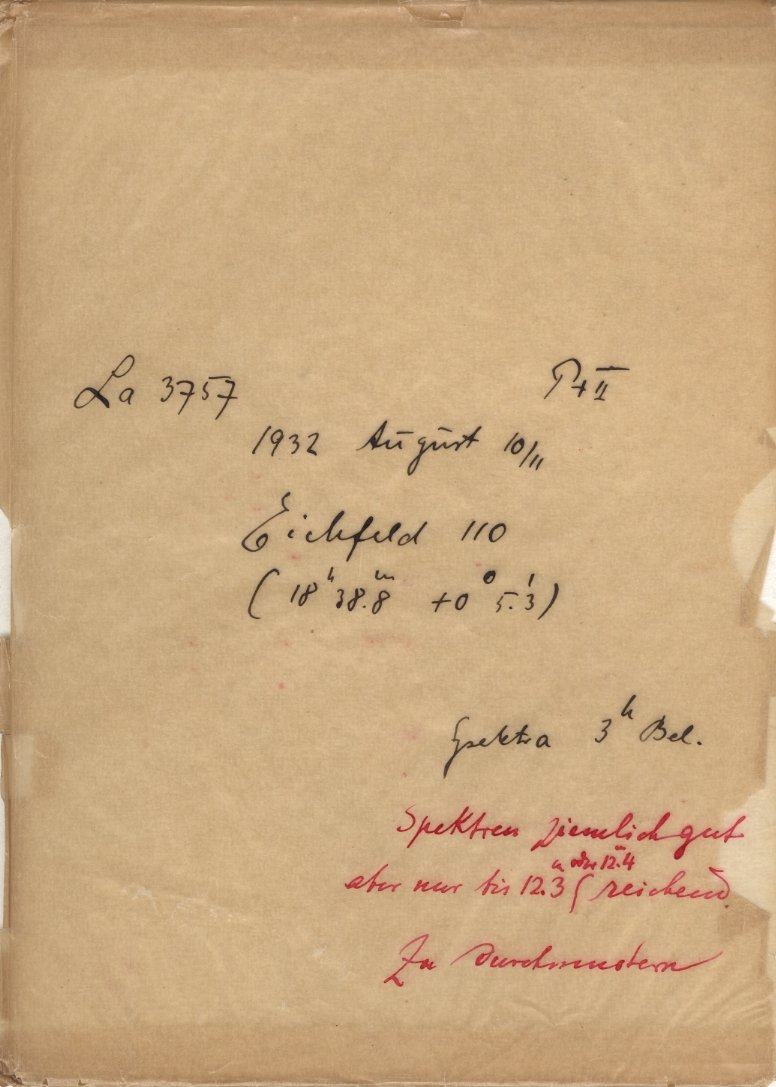 La 3757 P+II
1932 August 10/11
Eichfeld 110
(18ʰ38.8ᵐ +0° 5.3')
Spektra 3ʰ Bel.
Spektren ziemlich gut
oder 12.ᵐ4
aber nur bis 12.ᵐ3 reichend
Zu Durchmustern